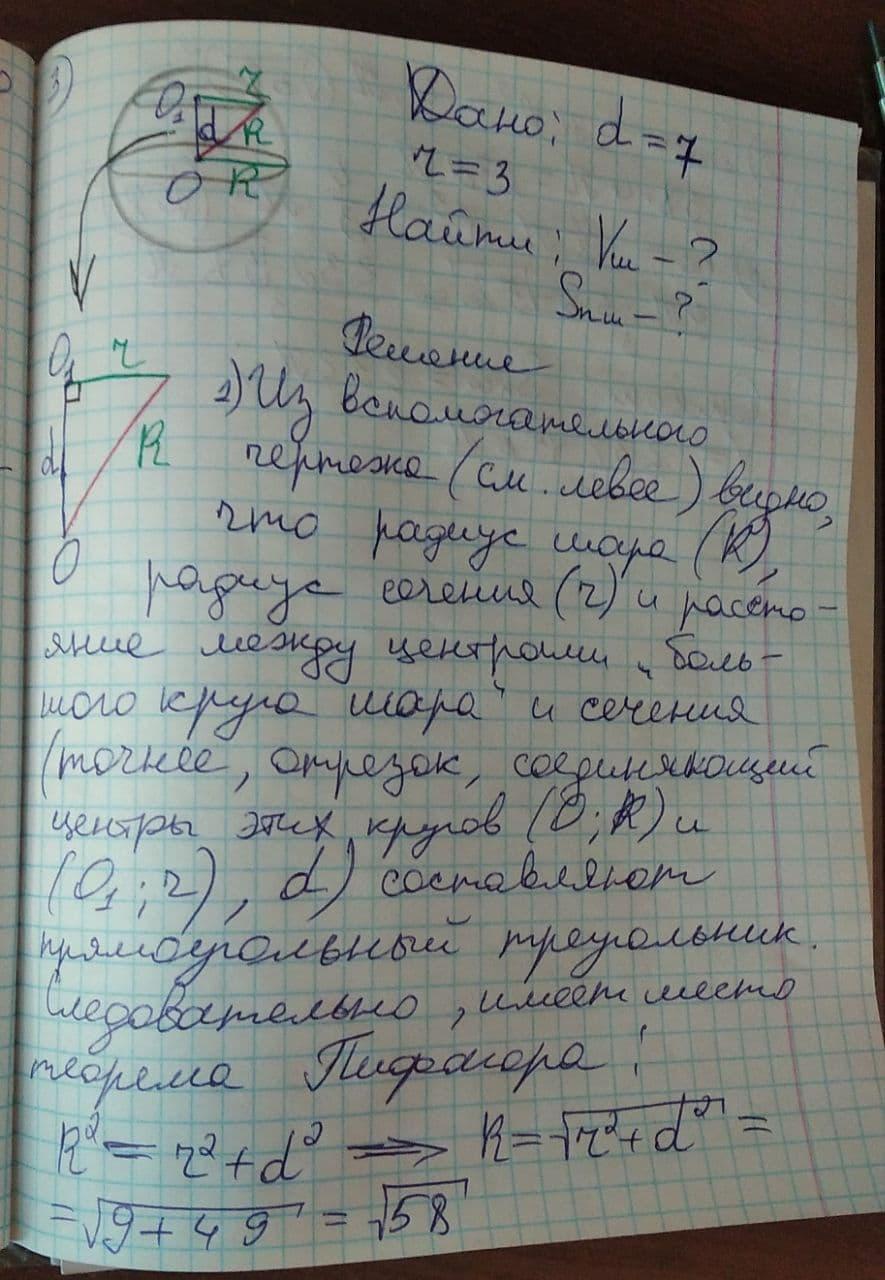 3)
O₁ r
d R
O R
Дано: d = 7
r = 3
Найти: Vш - ?
Sпш - ?
Решение
O₁ r
d R
O
1) Из вспомогательного
чертежа (см. левее) видно,
что радиус шара (R),
радиус сечения (r) и рассто-
яние между центрами „боль-
шого круга шара" и сечения
(точнее, отрезок, соединяющий
центры этих кругов (O; R) и
(O₁; r), d) составляют
прямоугольный треугольник.
Следовательно, имеет место
теорема Пифагора:
R² = r² + d² ⟹ R = √(r² + d²) =
= √(9 + 49) = √58